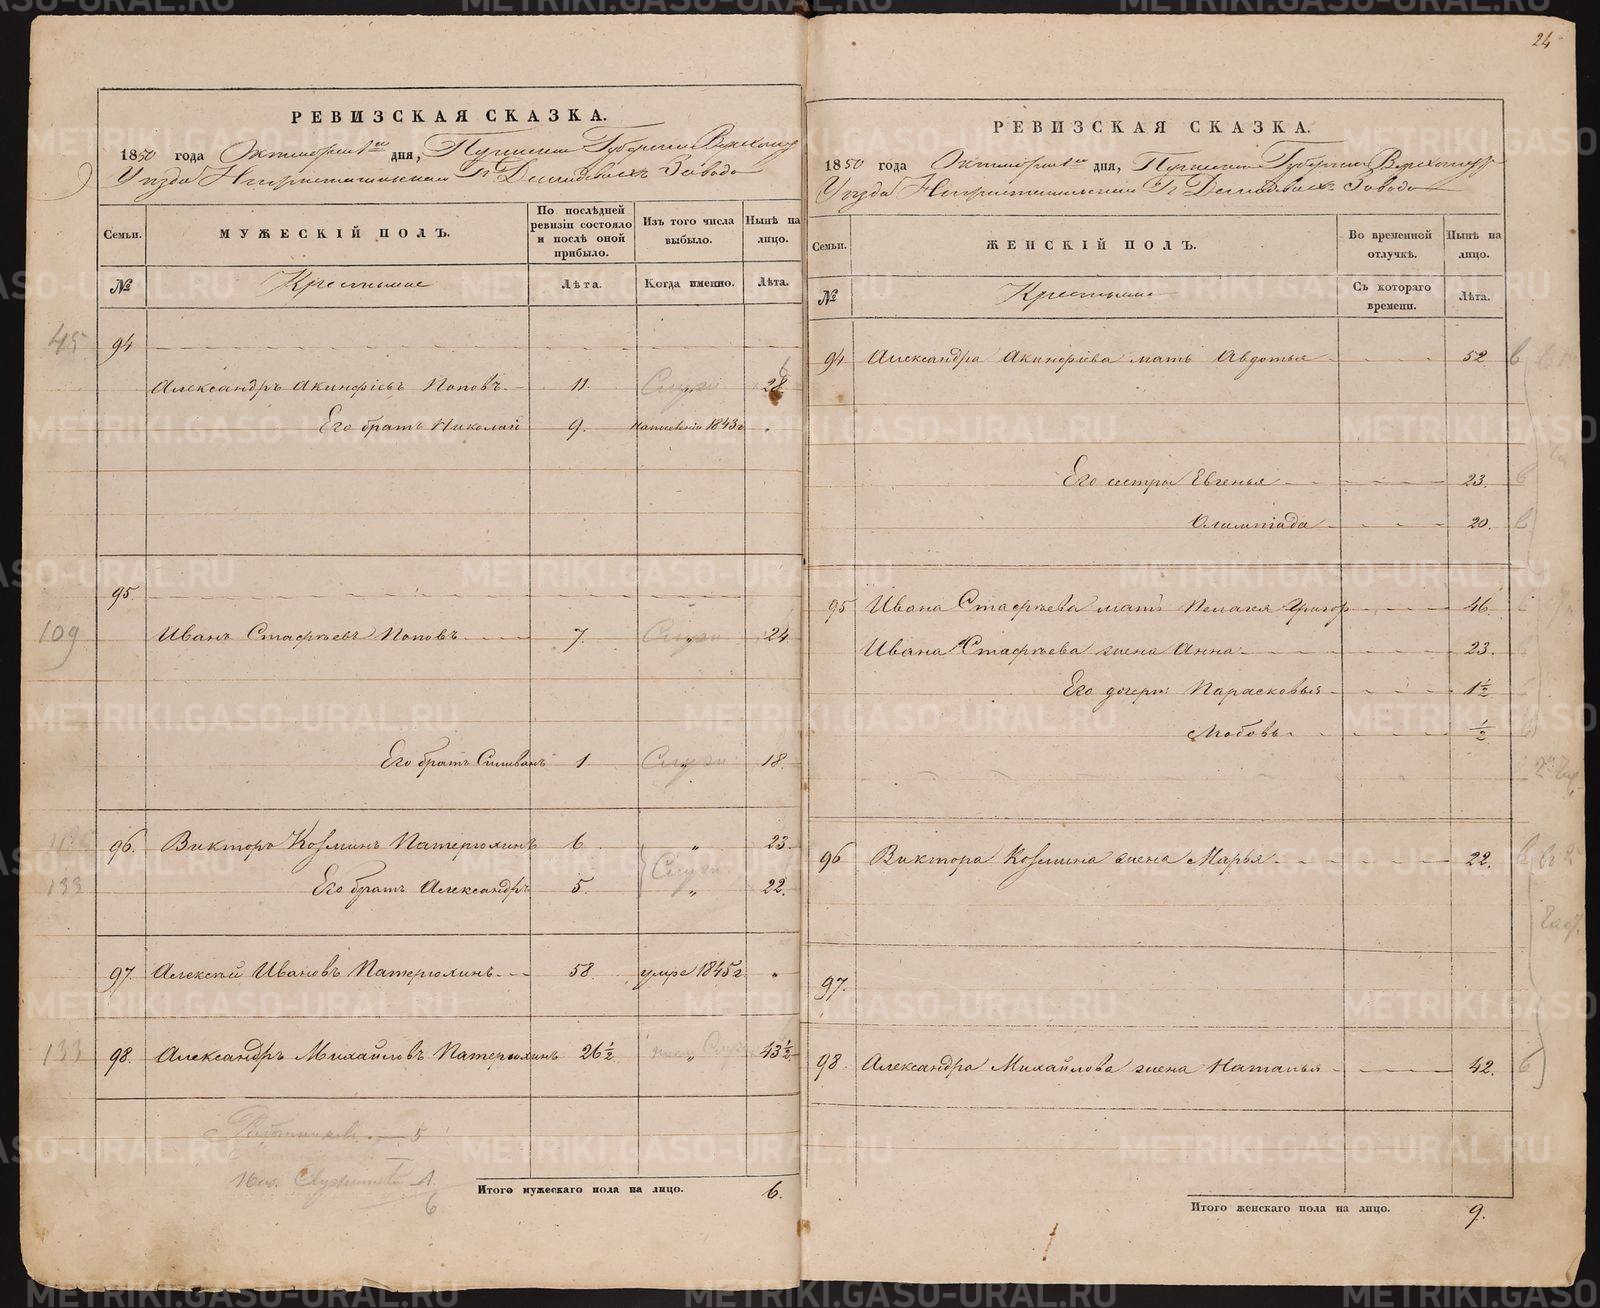 24
РЕВИЗСКАЯ СКАЗКА.
1850 года Октября 1го дня, Пермской Губернии Верхотур
Уезда Нижнетагильскаго Гг Демидовыхъ Завода
Семьи.
МУЖЕСКІЙ ПОЛЪ.
По послѣдней ревизіи состояло и послѣ оной прибыло.
Изъ того числа выбыло.
Нынѣ на лицо.
№
Крестьяне
Лѣта.
Когда именно.
Лѣта.
45 94
Александръ Акинфіевъ Поповъ 11. Служ „ 28
Его братъ Николай 9. 1843г
95
109 Иванъ Стафѣевъ Поповъ 7. Служ „ 24
Его братъ Силиванъ 1. Служ „ 18.
96. Викторъ Козминъ Патерюхинъ 6 „ 23.
133 Его братъ Александръ 5. Служ „ 22.
97. Алексѣй Ивановъ Патерюхинъ 58. умре 1845г
133 98. Александръ Михайловъ Патерюхинъ 26 1/2 „ 43 1/2
5
6
Итого мужескаго пола на лицо. 6.
РЕВИЗСКАЯ СКАЗКА.
1850 года Октября 1го дня, Пермской Губернии Верхотур
Уезда Нижнетагильскаго Гг Демидовыхъ Завода
Семьи.
ЖЕНСКІЙ ПОЛЪ.
Во временной отлучкѣ.
Нынѣ на лицо.
№
Крестьяне
Съ котораго времени.
Лѣта.
94 Александра Акинфіева мать Авдотья 52
Его сестры Евгенья 23.
Олимпіада 20.
95 Ивана Стафѣева мать Пелагея Григор 46
Ивана Стафѣева жена Анна 23.
Его дочери: Парасковья 1 1/2
Любовь 1/2
96 Виктора Козмина жена Марья 22.
97.
98. Александра Михайлова жена Наталья 42.
Итого женскаго пола на лицо. 9.
METRIKI.GASO-URAL.RU